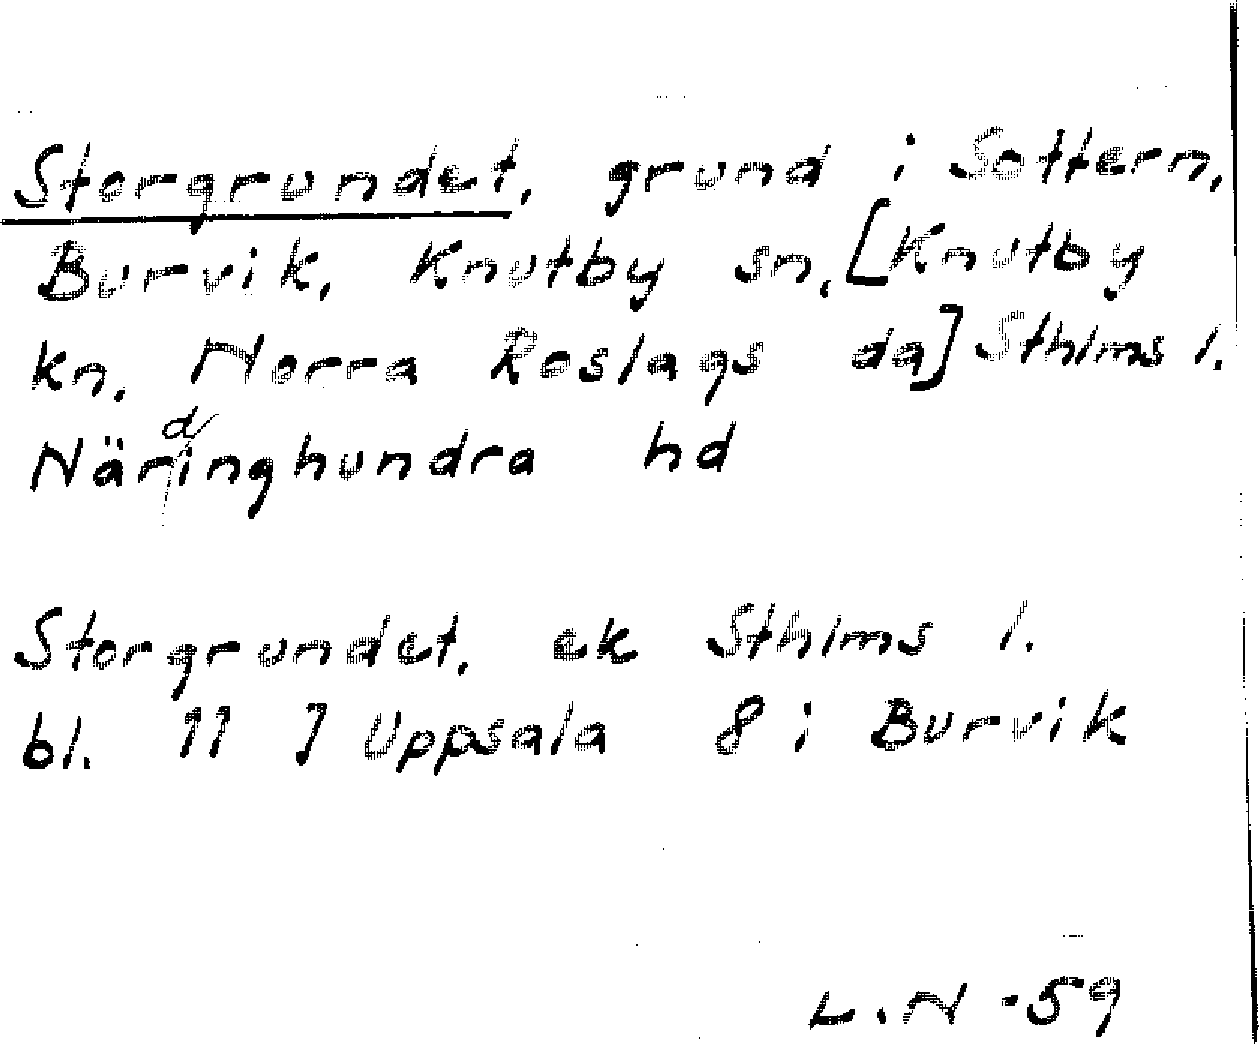 Storgrundet, grund i Sottern,
Burvik, Knutby sn, [Knutby
kn, Norra Roslags da] Sthlms l.
Närdinghundra hd
Storgrundet, ek Sthlms l.
bl. 11 J Uppsala 8 i Burvik
L.N -59